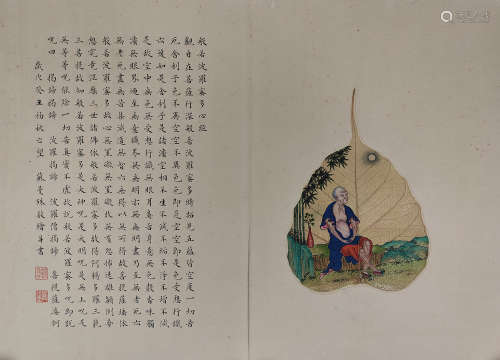 般若波羅蜜多心經
觀自在菩薩行深般若波羅蜜多時照見五蘊皆空度一切苦
厄舍利子色不異空空不異色色即是空空即是色受想行識
亦復如是舍利子是諸法空相不生不滅不垢不淨不增不減
是故空中無色無受想行識無眼耳鼻舌身意無色聲香味觸
法無眼界乃至無意識界無無明亦無無明盡乃至無老死亦
無老死盡無苦集滅道無智亦無得以無所得故菩提薩埵依
般若波羅蜜多故心無罣礙無罣礙故無有恐怖遠離顛倒夢
想究竟涅槃三世諸佛依般若波羅蜜多故得阿耨多羅三藐
三菩提故知般若波羅蜜多是大神呪是大明呪是無上呪是
無等等呪能除一切苦真實不虛故說般若波羅蜜多呪即說
呪曰 揭諦揭諦 波羅揭諦 波羅僧揭諦 菩提薩婆訶
歲次癸丑初秋 望 蘇曼殊敬繪并書